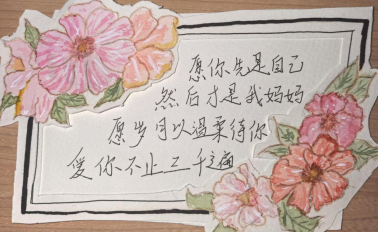 愿你先是自己
然后才是我妈妈
愿岁月以温柔待你
爱你不止三千遍